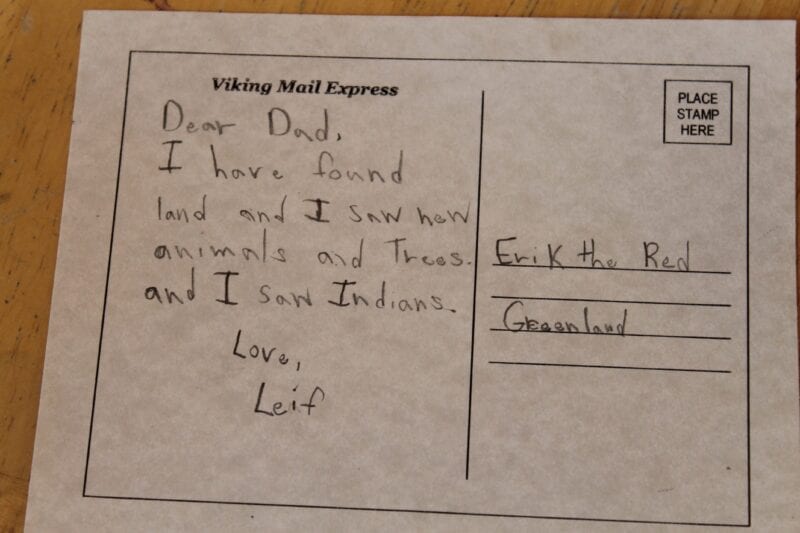 Viking Mail Express
Dear Dad,
I have found
land and I saw new
animals and Trees.
and I saw Indians.
Love,
Leif
PLACE
STAMP
HERE
Erik the Red
Greenland